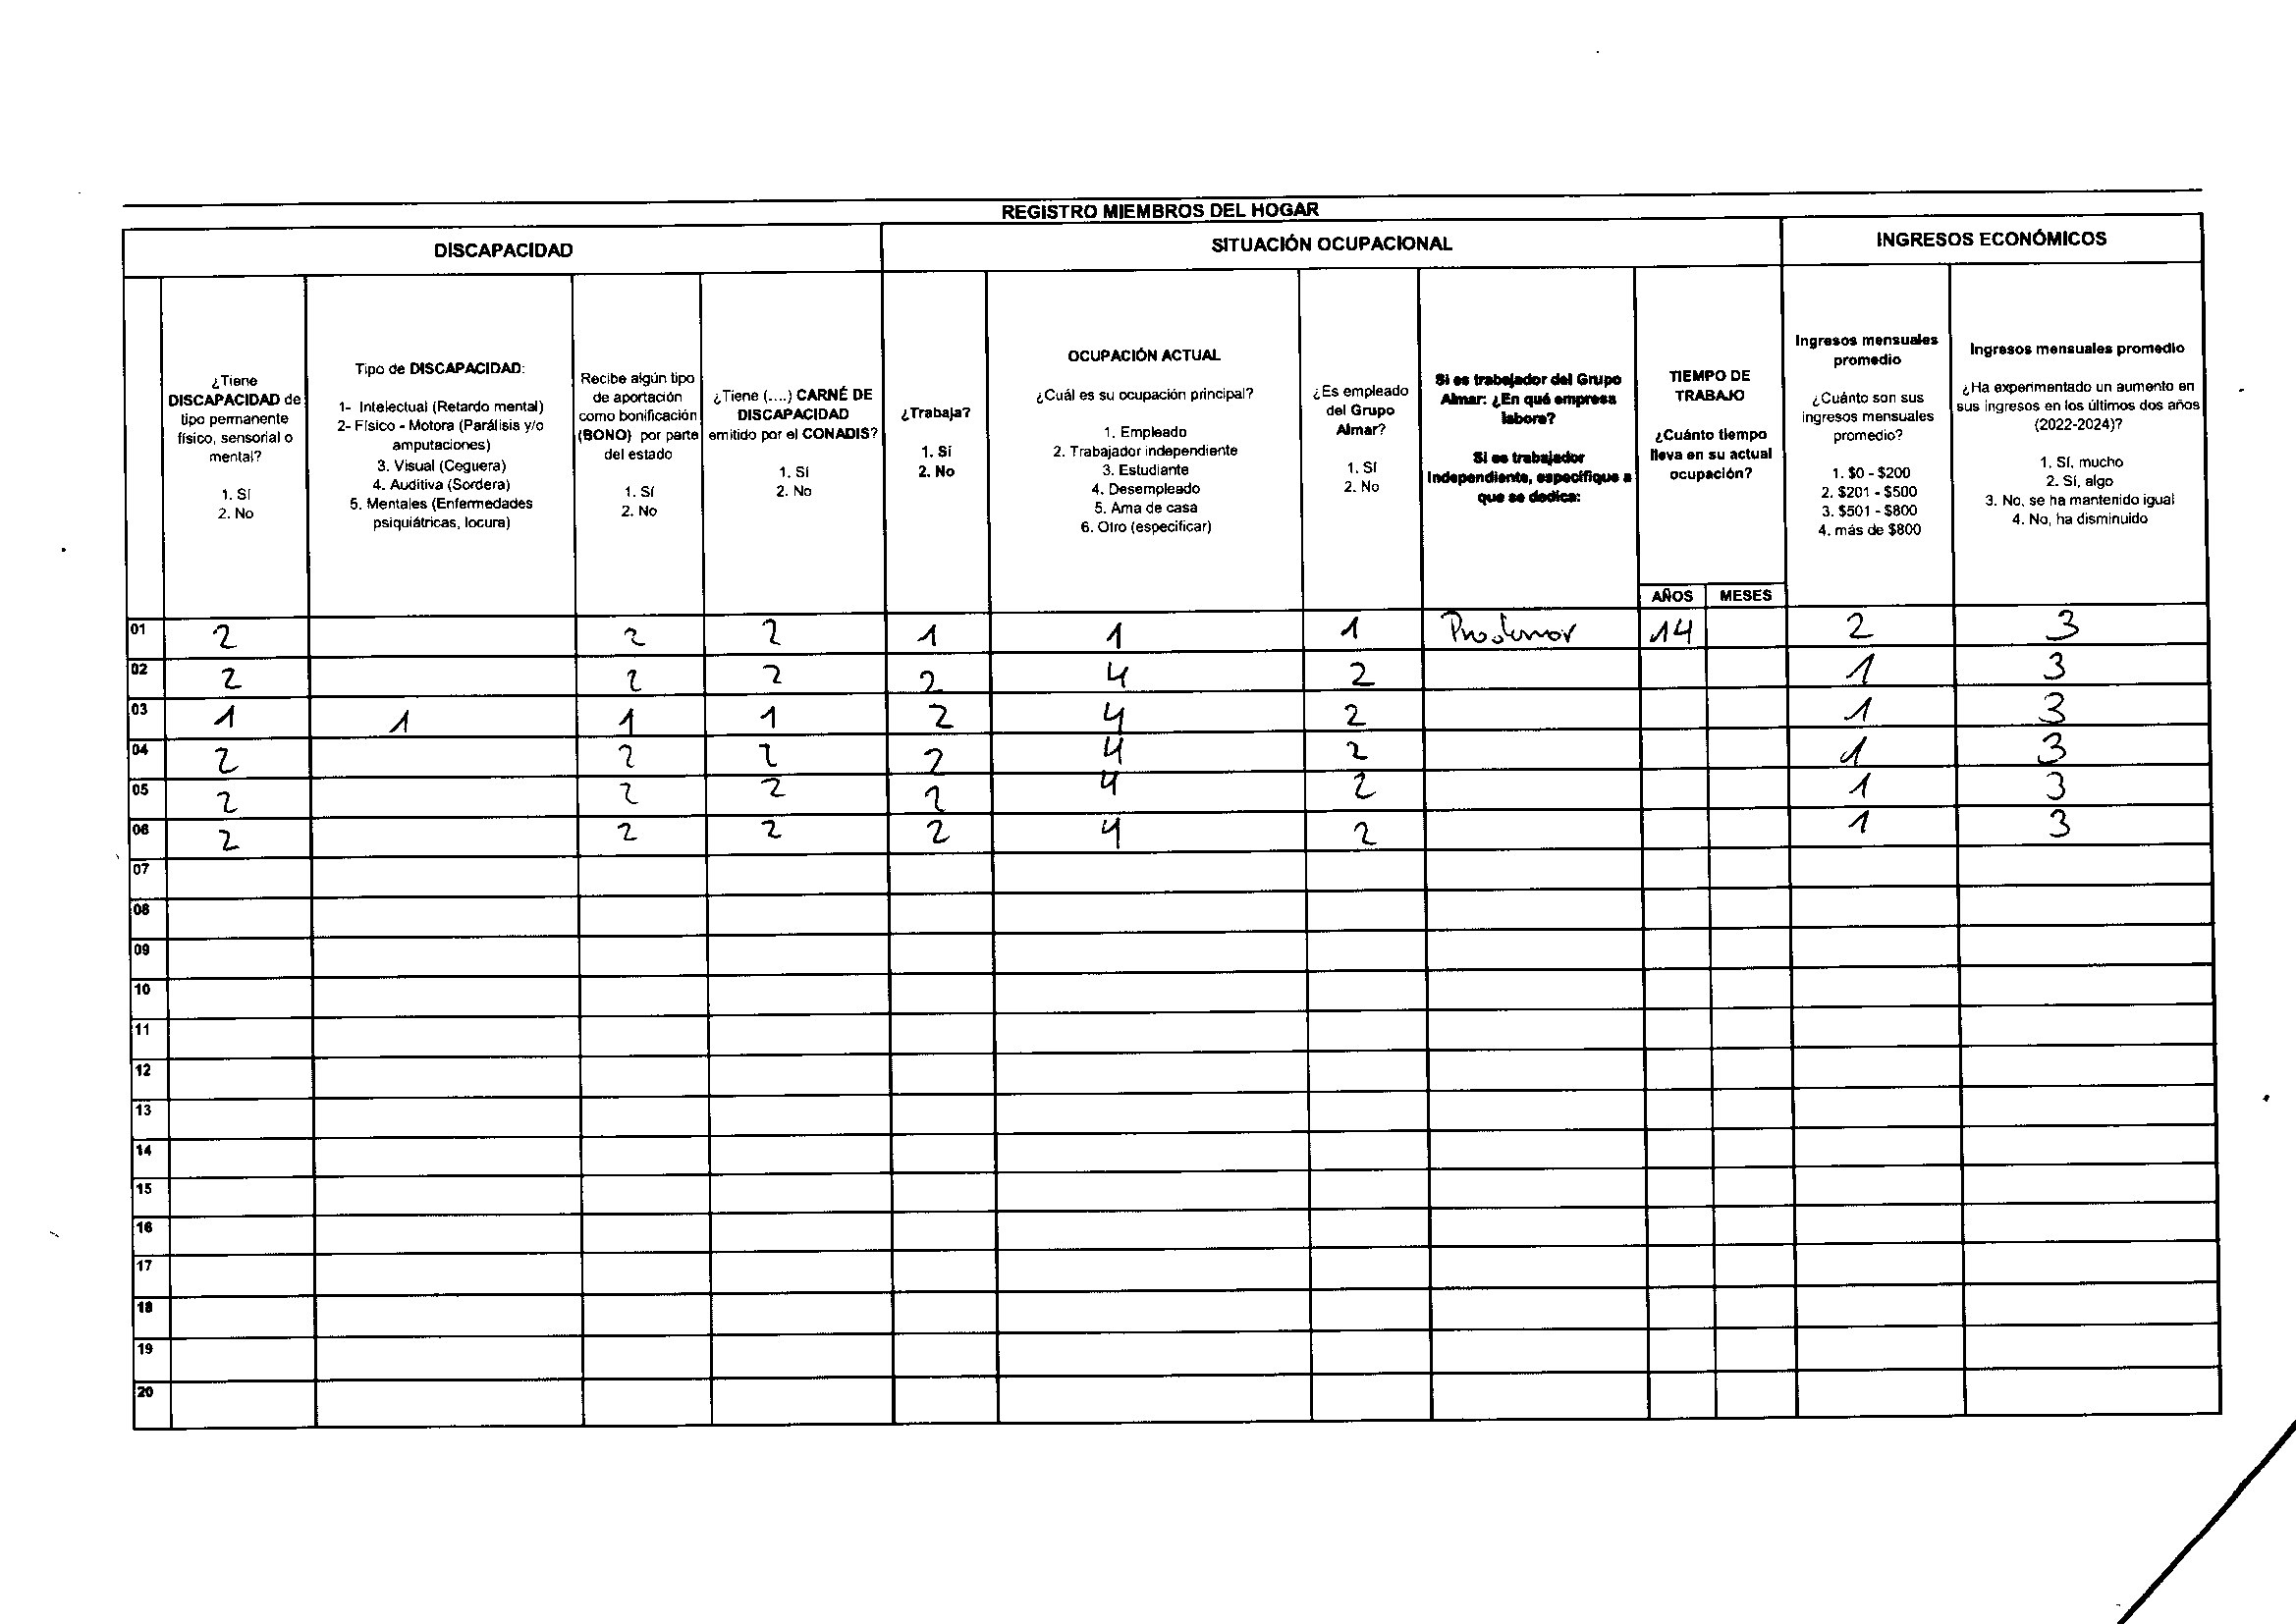 REGISTRO MIEMBROS DEL HOGAR
DISCAPACIDAD SITUACIÓN OCUPACIONAL INGRESOS ECONÓMICOS
¿Tiene
DISCAPACIDAD de
tipo permanente
físico, sensorial o
mental?
1. Sí
2. No
Tipo de DISCAPACIDAD:
1- Intelectual (Retardo mental)
2- Físico - Motora (Parálisis y/o
amputaciones)
3. Visual (Ceguera)
4. Auditiva (Sordera)
5. Mentales (Enfermedades
psiquiátricas, locura)
Recibe algún tipo
de aportación
como bonificación
(BONO) por parte
del estado
1. Sí
2. No
¿Tiene (....) CARNÉ DE
DISCAPACIDAD
emitido por el CONADIS?
1. Sí
2. No
¿Trabaja?
1. Sí
2. No
OCUPACIÓN ACTUAL
¿Cuál es su ocupación principal?
1. Empleado
2. Trabajador independiente
3. Estudiante
4. Desempleado
5. Ama de casa
6. Otro (especificar)
¿Es empleado
del Grupo
Almar?
1. Sí
2. No
Si es trabajador del Grupo
Almar: ¿En qué empresa
labora?
Si es trabajador
Independiente, especifique a
que se dedica:
TIEMPO DE
TRABAJO
¿Cuánto tiempo
lleva en su actual
ocupación?
AÑOS MESES
Ingresos mensuales
promedio
¿Cuánto son sus
ingresos mensuales
promedio?
1. $0 - $200
2. $201 - $500
3. $501 - $800
4. más de $800
Ingresos mensuales promedio
¿Ha experimentado un aumento en
sus ingresos en los últimos dos años
(2022-2024)?
1. Sí, mucho
2. Sí, algo
3. No, se ha mantenido igual
4. No, ha disminuido
01 2 2 2 1 1 1 14 2 3
02 2 2 2 2 4 2 1 3
03 1 1 1 1 2 4 2 1 3
04 2 2 2 2 4 2 1 3
05 2 2 2 2 4 2 1 3
06 2 2 2 2 4 2 1 3
07
08
09
10
11
12
13
14
15
16
17
18
19
20